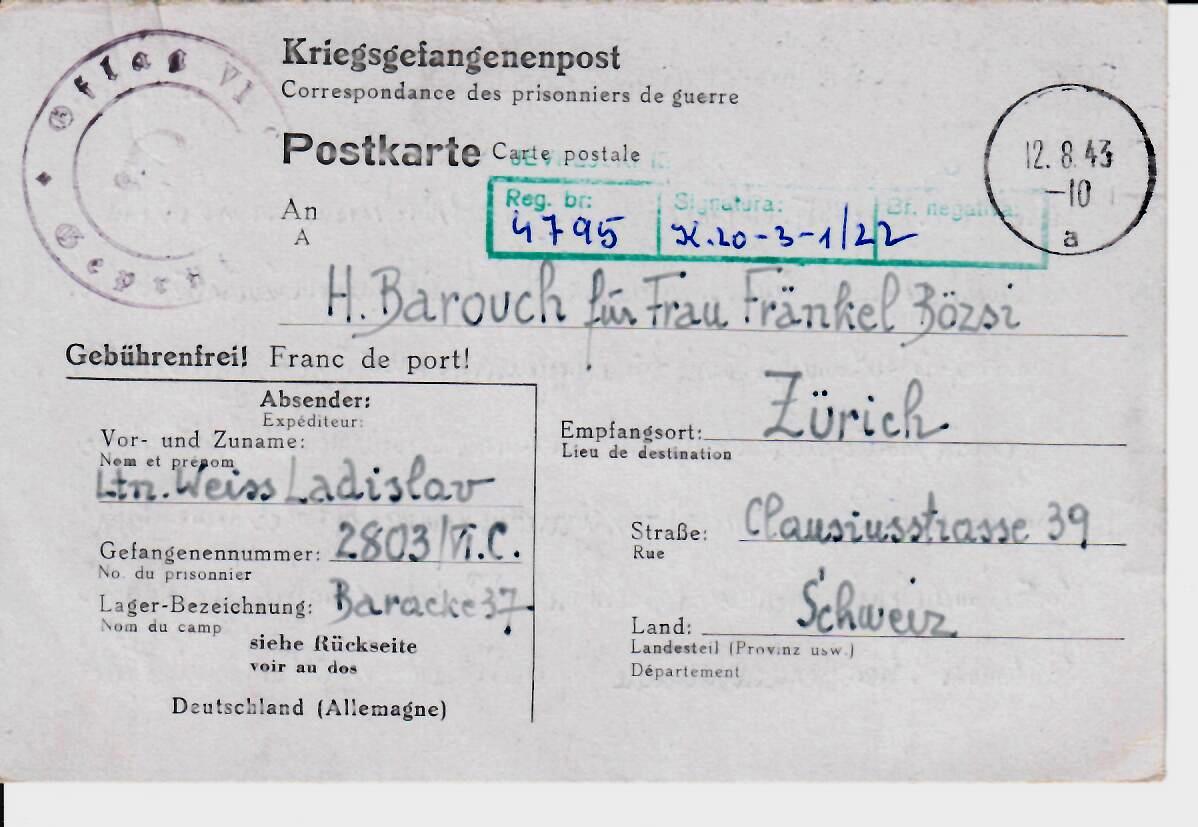 Oflag VI
Geprüft
Kriegsgefangenenpost
Correspondance des prisonniers de guerre
Postkarte Carte postale
12.8.43
-10
a
An
A
Reg. br: Signatura: Br. negativa:
4795 K.20-3-1/22
H. Barouch für Frau Fränkel Bözsi
Gebührenfrei! Franc de port!
Absender:
Expéditeur:
Vor- und Zuname:
Nom et prénom
Ltn. Weiss Ladislav
Gefangenennummer: 2803/VI.C.
No. du prisonnier
Lager-Bezeichnung: Baracke 37.
Nom du camp
siehe Rückseite
voir au dos
Deutschland (Allemagne)
Empfangsort: Zürich
Lieu de destination
Straße: Clausiusstrasse 39
Rue
Land: Schweiz
Landesteil (Provinz usw.)
Département